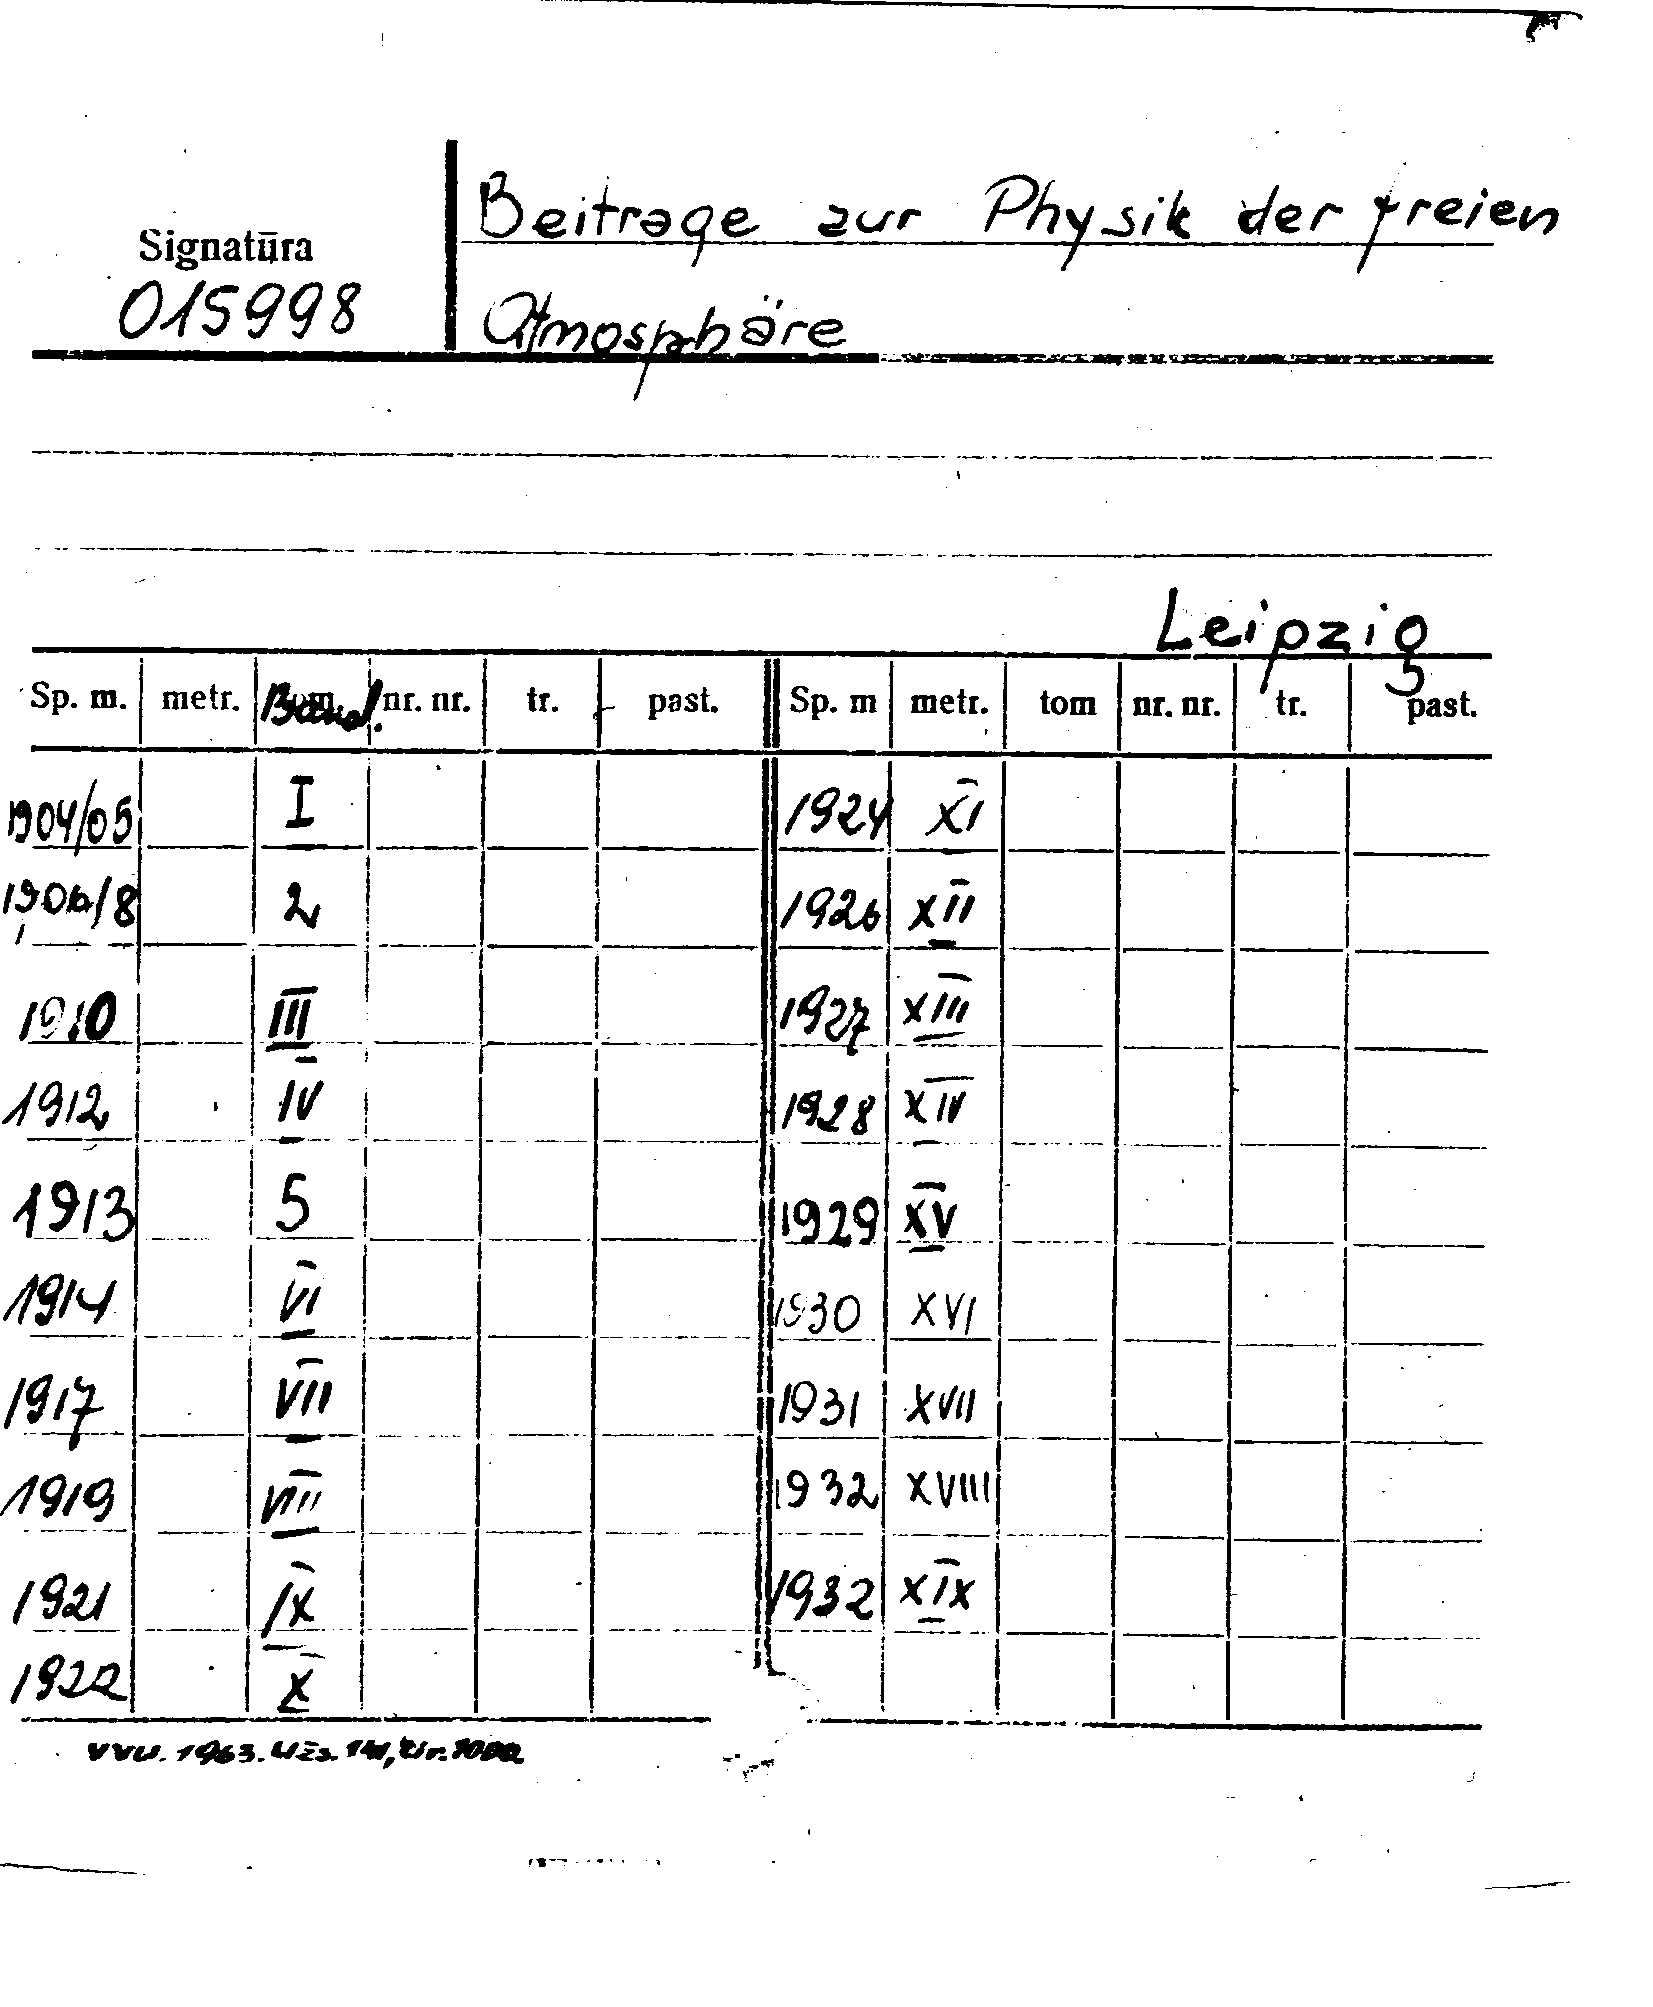 Beitrage zur Physik der freien
Signatūra
015998
Atmosphäre
Leipzig
Sp. m. metr. Band. nr. nr. tr. past. Sp. m metr. tom nr. nr. tr. past.
1904/05 I 1924 XI
1906/8 2 1926 XII
1910 III 1927 XIII
1912 IV 1928 XIV
1913 5 1929 XV
1914 VI 1930 XVI
1917 VII 1931 XVII
1919 VIII 1932 XVIII
1921 IX 1932 XIX
1922 X
VVU. 1963. Užs.